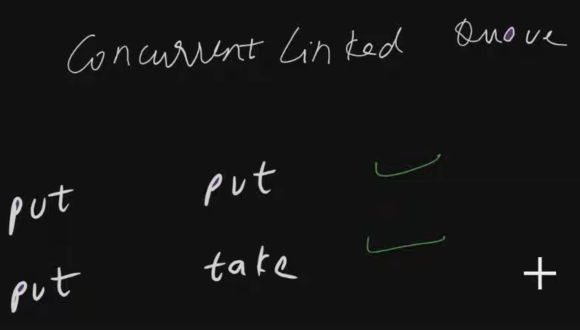 Concurrent Linked Quove
put put
put take